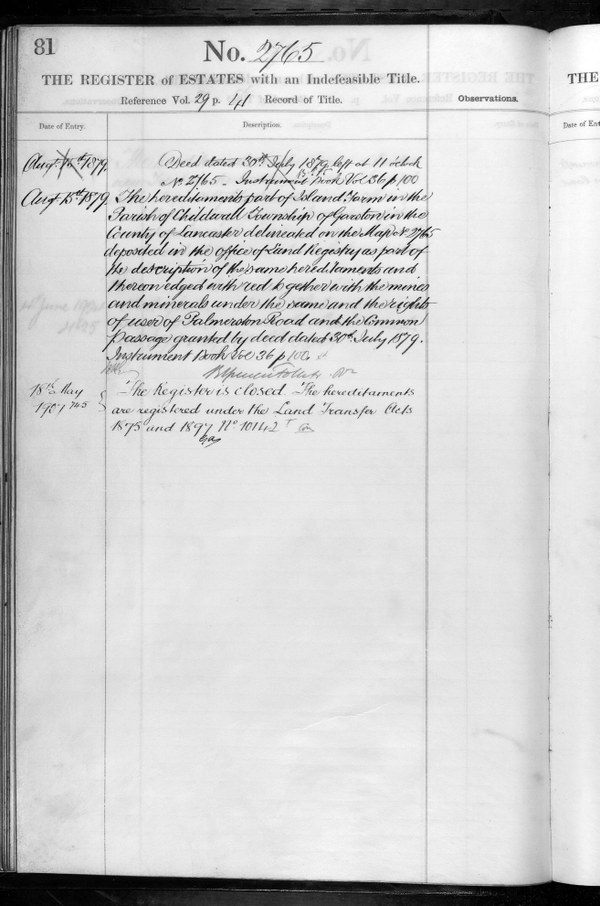 81
No. 2765
THE REGISTER of ESTATES with an Indefeasible Title.
Reference Vol. 29 p. 41 Record of Title.
Observations.
Date of Entry.
Description.
Augt 15th 1879.
Deed dated 30th July 1879 left at 11 o'clock
No 2765 - Instrument Book Vol 36 p 100
Augt 15th 1879.
The hereditaments part of Island Farm in the
Parish of Childwall Township of Garston in the
County of Lancaster delineated on the Map No 2765
deposited in the office of Land Registry as part of
the description of the same hereditaments and
thereon edged with red together with the mines
and minerals under the same and the rights
of user of Palmerston Road and the Common
passage granted by deed dated 30th July 1879.
Instrument Book Vol 36 p 100
18th May
1907
The Register is closed The hereditaments
are registered under the Land Transfer Acts
1875 and 1897 No 10142
THE
Date of Ent